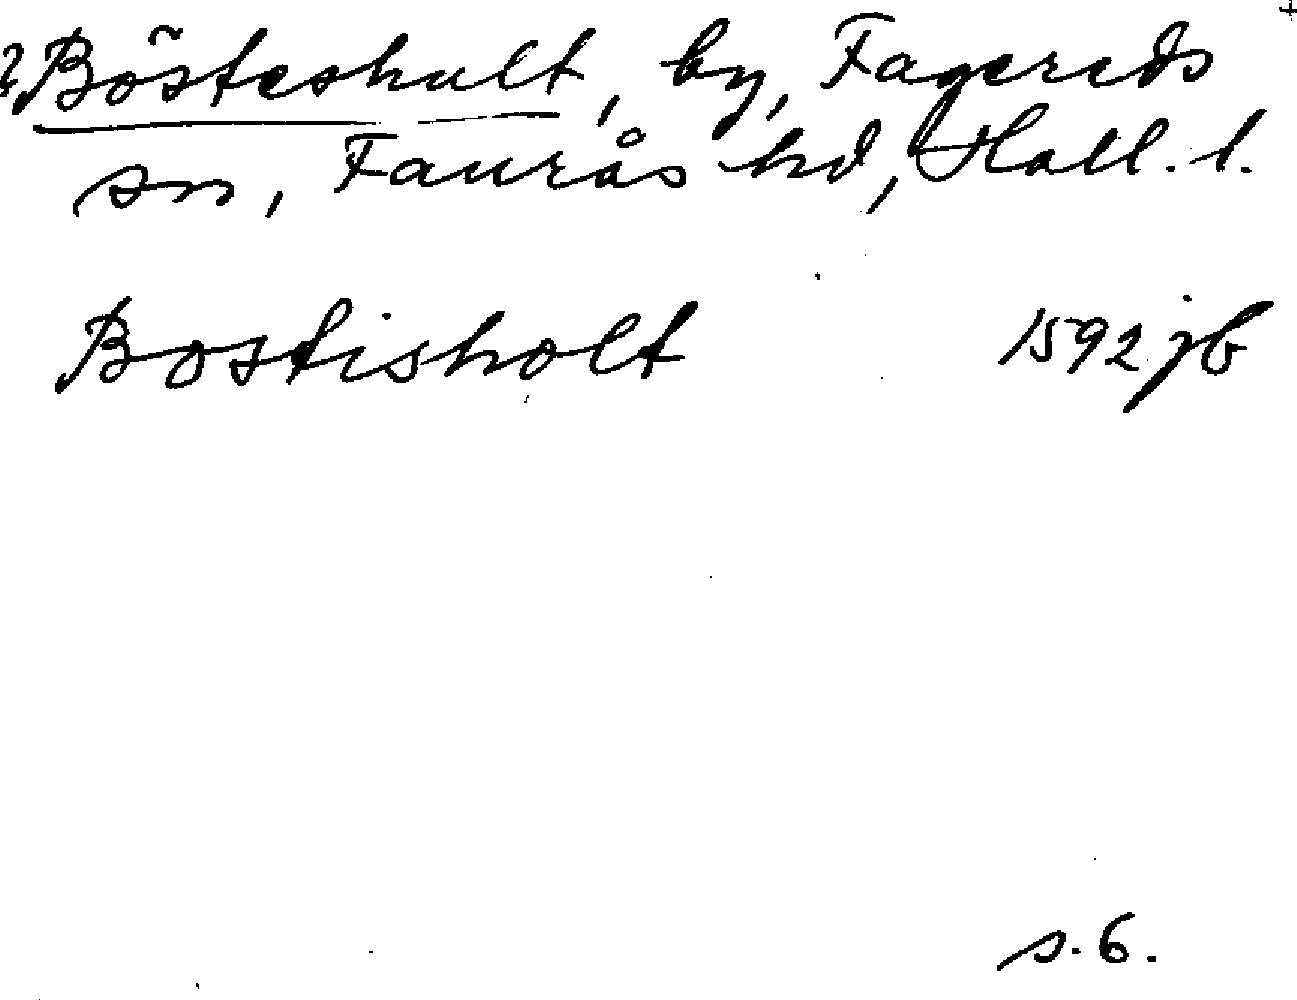 ? Bösteshult, by, Fagereds
sn, Faurås hd, Hall. l.
Bostisholt 1592 jb
s. 6.